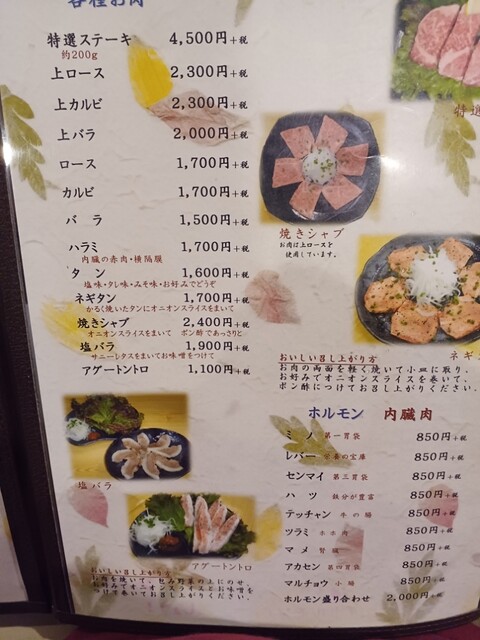 各種お肉
特選ステーキ 4,500円+税
約200g
上ロース 2,300円+税
上カルビ 2,300円+税
上バラ 2,000円+税
ロース 1,700円+税
カルビ 1,700円+税
バラ 1,500円+税
ハラミ 1,700円+税
内臓の赤肉・横隔膜
タン 1,600円+税
塩味・タレ味・みそ味・お好みでどうぞ
ネギタン 1,700円+税
かるく焼いたタンにオニオンスライスをまいて
焼きシャブ 2,400円+税
オニオンスライスをまいて ポン酢であっさりと
塩バラ 1,900円+税
サニーレタスをまいてお味噌をつけて
アグートントロ 1,100円+税
塩バラ
アグートントロ
おいしい召し上がり方
お肉を焼いて、包み野菜の上にのせ、
お好みでオニオンスライスとお味噌を
つけて巻いてお召し上がりください。
特選
焼きシャブ
お肉は上ロースを
使用しています。
ネギ
おいしい召し上がり方
お肉の両面を軽く焼いて小皿に取り、
お好みでオニオンスライスを巻いて、
ポン酢につけてお召し上がりください。
ホルモン 内臓肉
ミノ 第一胃袋 850円+税
レバー 栄養の宝庫 850円+税
センマイ 第三胃袋 850円+税
ハツ 鉄分が豊富 850円+税
テッチャン 牛の腸 850円+税
ツラミ ホホ肉 850円+税
マメ 腎臓 850円+税
アカセン 第四胃袋 850円+税
マルチョウ 小腸 850円+税
ホルモン盛り合わせ 2,000円+税